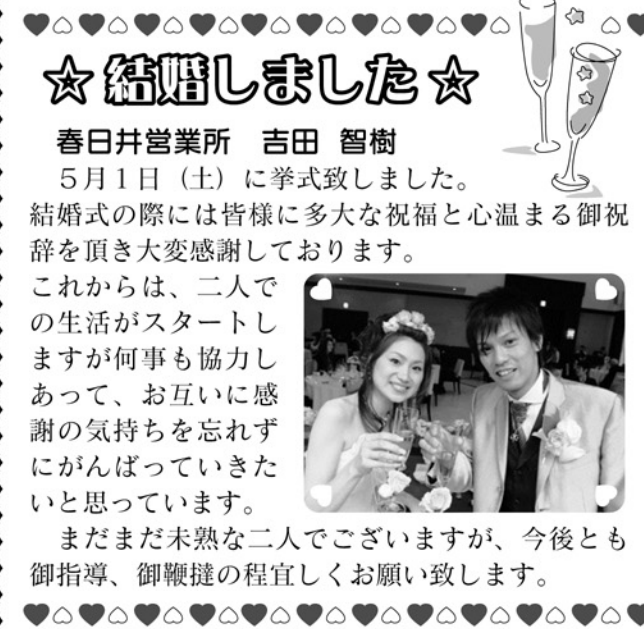 ☆結婚しました☆
春日井営業所　吉田 智樹
　５月１日（土）に挙式致しました。
結婚式の際には皆様に多大な祝福と心温まる御祝
辞を頂き大変感謝しております。
これからは、二人で
の生活がスタートし
ますが何事も協力し
あって、お互いに感
謝の気持ちを忘れず
にがんばっていきた
いと思っています。
　まだまだ未熟な二人でございますが、今後とも
御指導、御鞭撻の程宜しくお願い致します。